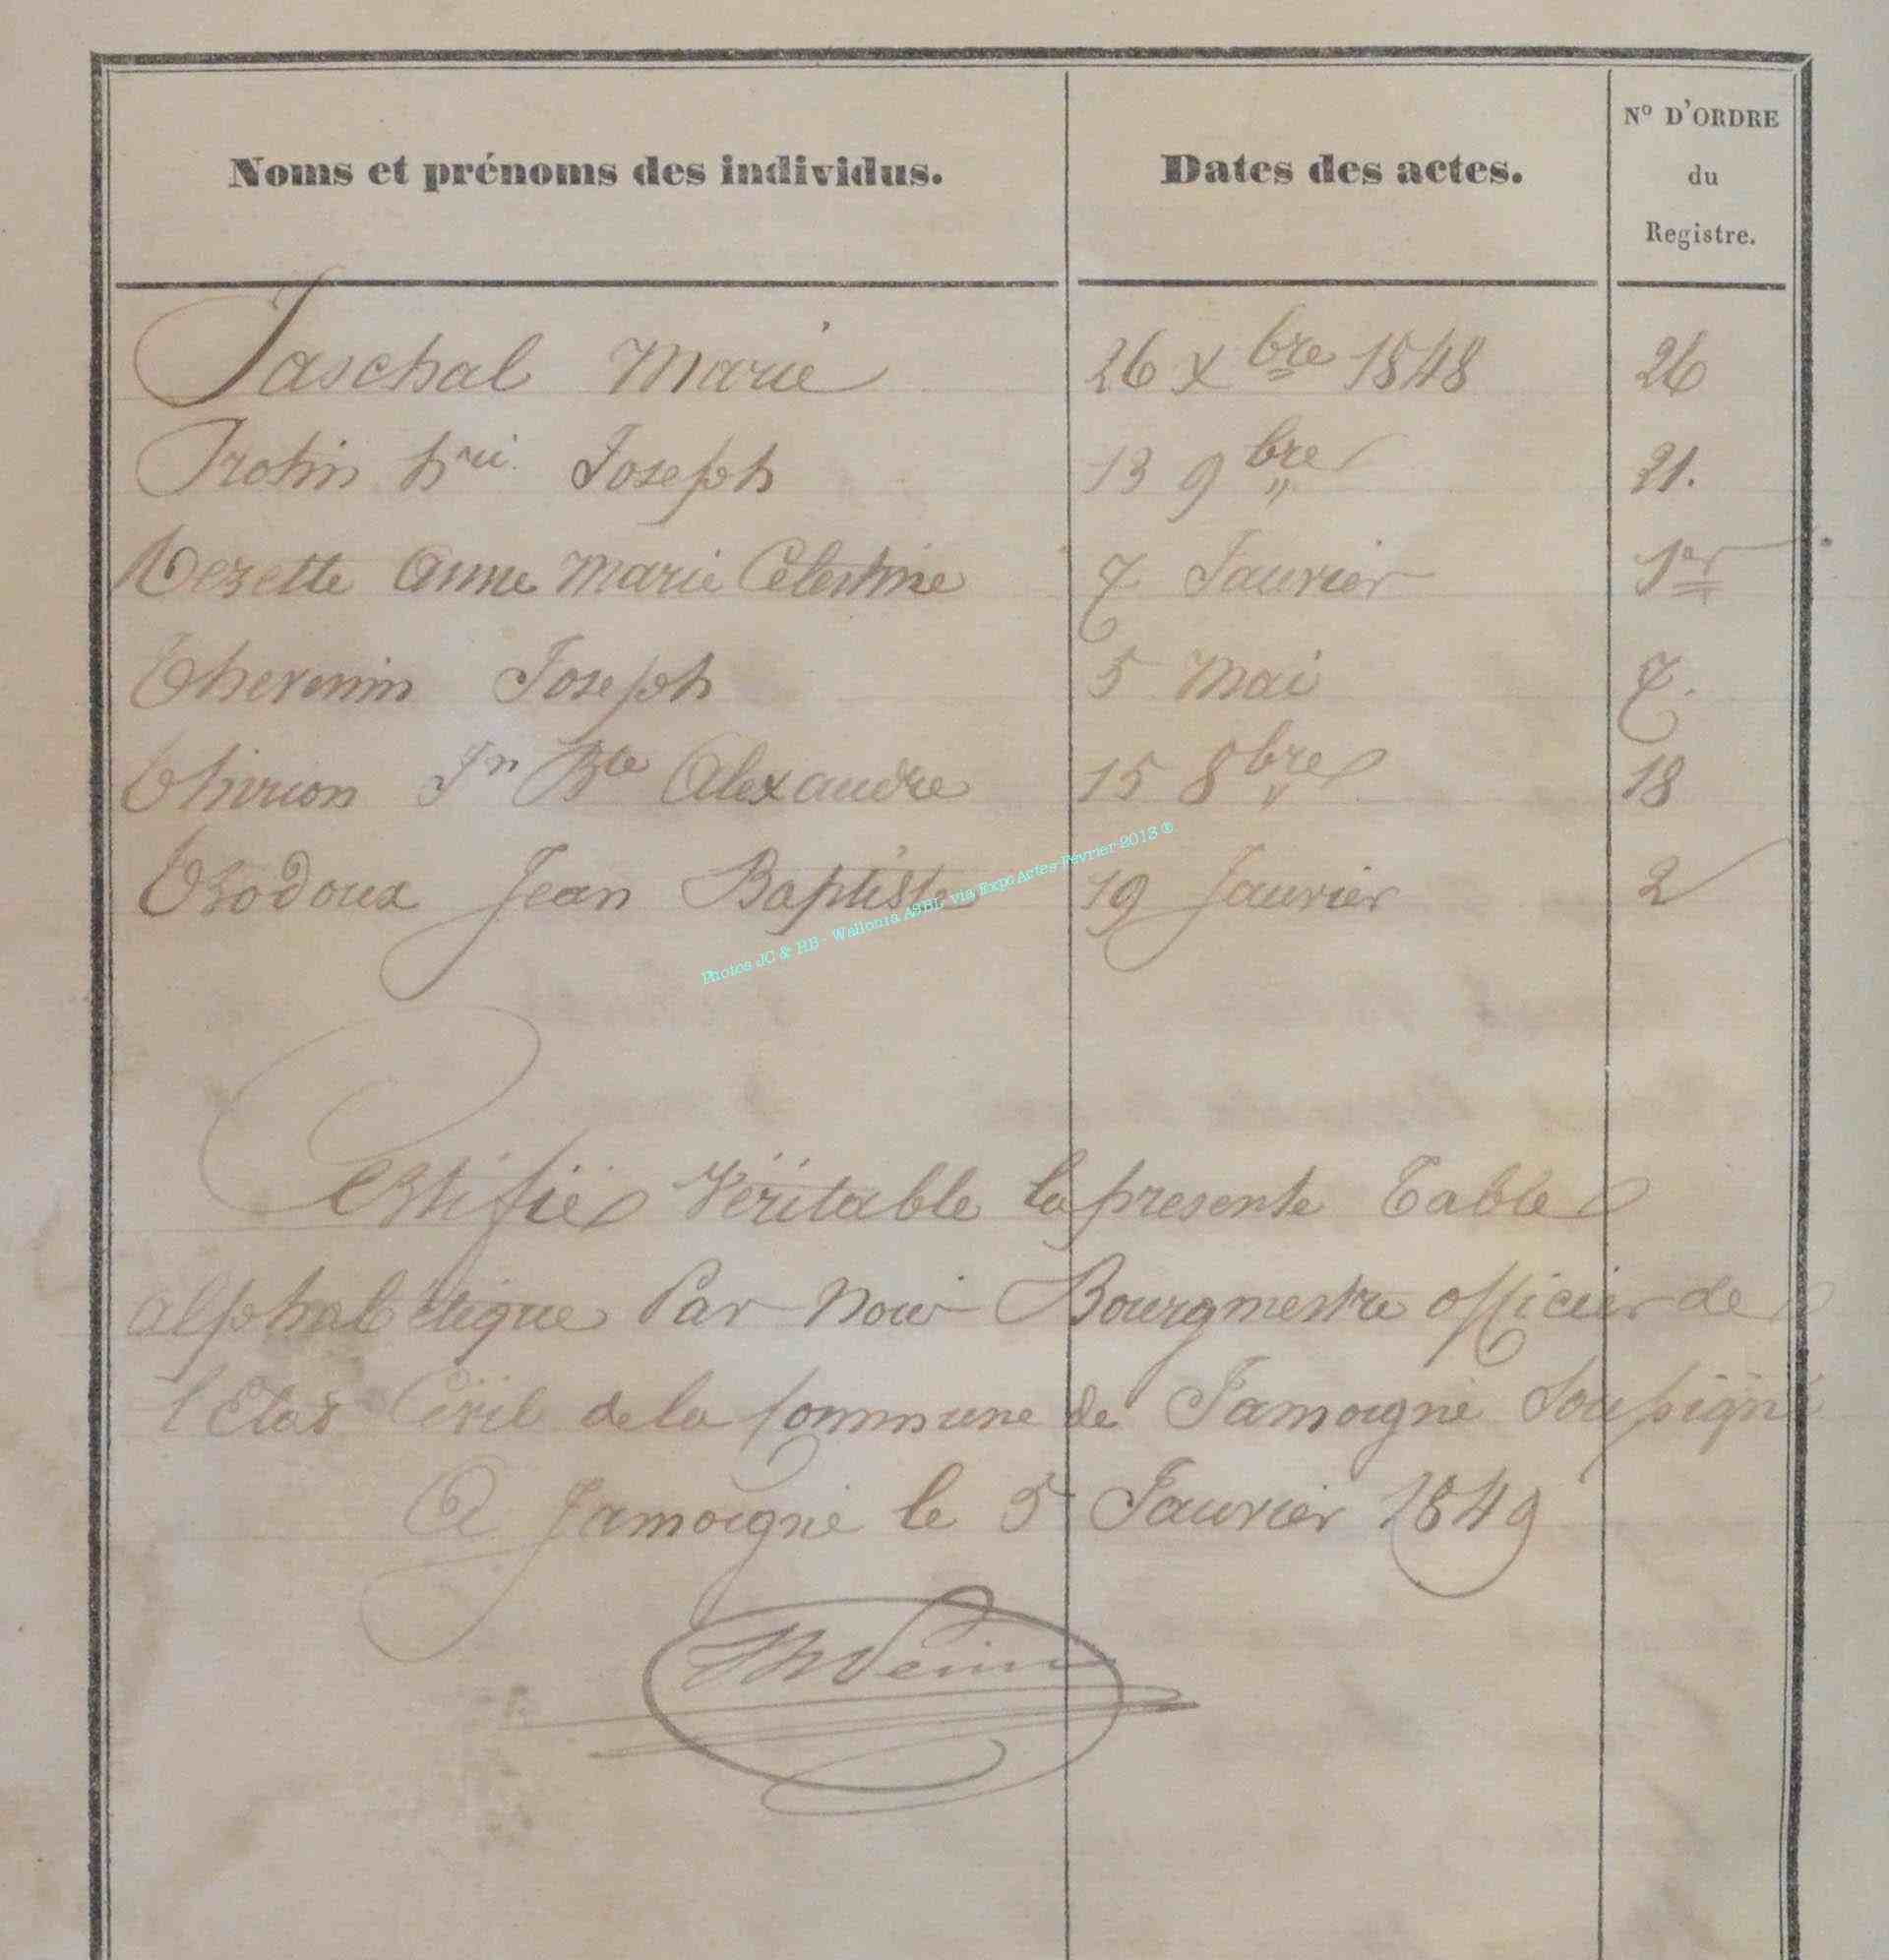 Noms et prénoms des individus. Dates des actes. N° D'ORDRE
du
Registre.
Paschal Marie 26 xbre 1848 26
Protin hri Joseph 13 9bre " 21.
Rezette Anne Marie Celestine 7 Janvier 1er
Thevenin Joseph 5 Mai 7.
Thirion Jn Bte Alexandre 15 8bre " 18
Trodoux Jean Baptiste 19 Janvier 2
Photos JC & HB - Wallonia ASBL via Expo Actes Février 2013 ®
Certifiée Véritable la presente Table
alphabétique Par Nous Bourgmestre officier de
l'Etat Civil de la Commune de Jamoigne Soussigné
A Jamoigne le 5 Janvier 1849